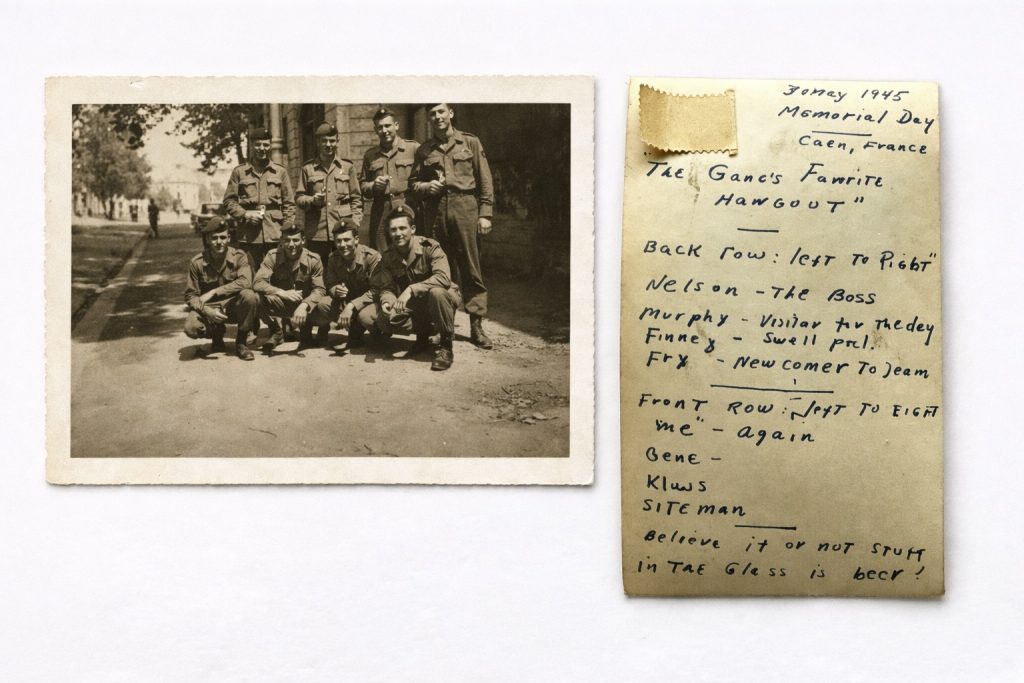 30 May 1945
Memorial Day
Caen, France
"The Gang's Fawrite
HANGOUT"
Back row: left to Right"
Nelson - The Boss
Murphy - Visitar for The day
Finney - Swell pal.
Fry - New comer To Team
Front Row: left To Eight
"me" - Again
Gene -
SITEman
Believe it or not stuff
in The Glass is beer!